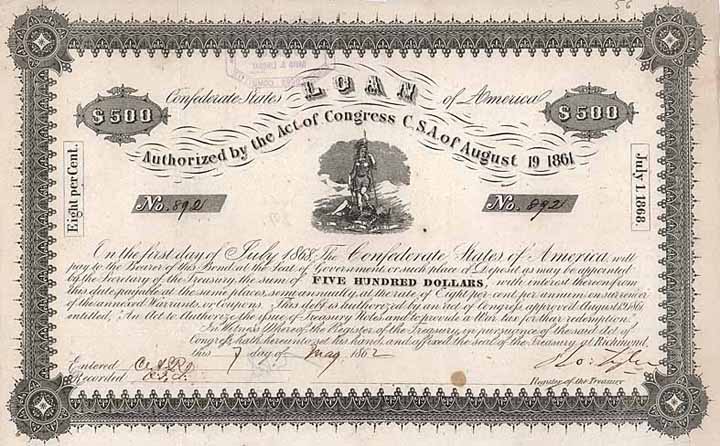 56
Confederate States LOAN of America
$500 $500
Authorized by the Act of Congress C.S.A. of August 19 1861
Eight per Cent.
July 1. 1868.
No. 892 No. 892
On the first day of July 1868, The Confederate States of America, will
pay to the Bearer of this Bond, at the Seat of Government, or such place of Deposit as may be appointed
by the Secretary of the Treasury, the sum of FIVE HUNDRED DOLLARS, with interest thereon from
this date, payable at the same place, semi annually, at the rate of Eight per cent per annum, on surrender
of the annexed Warrants, or Coupons. This debt is authorized by an act of Congress approved August 19, 1861,
entitled, "An Act to Authorize the issue of Treasury Notes and to provide a War tax for their redemption."
In Witness Whereof the Register of the Treasury, in pursuance of the said Act of
Congress, hath hereunto set his hand, and affixed the seal of the Treasury, at Richmond,
this 7 day of May 1862
Entered
Recorded
Register of the Treasury